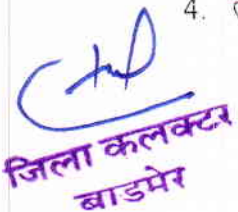 4.
जिला कलक्टर
बाडमेर